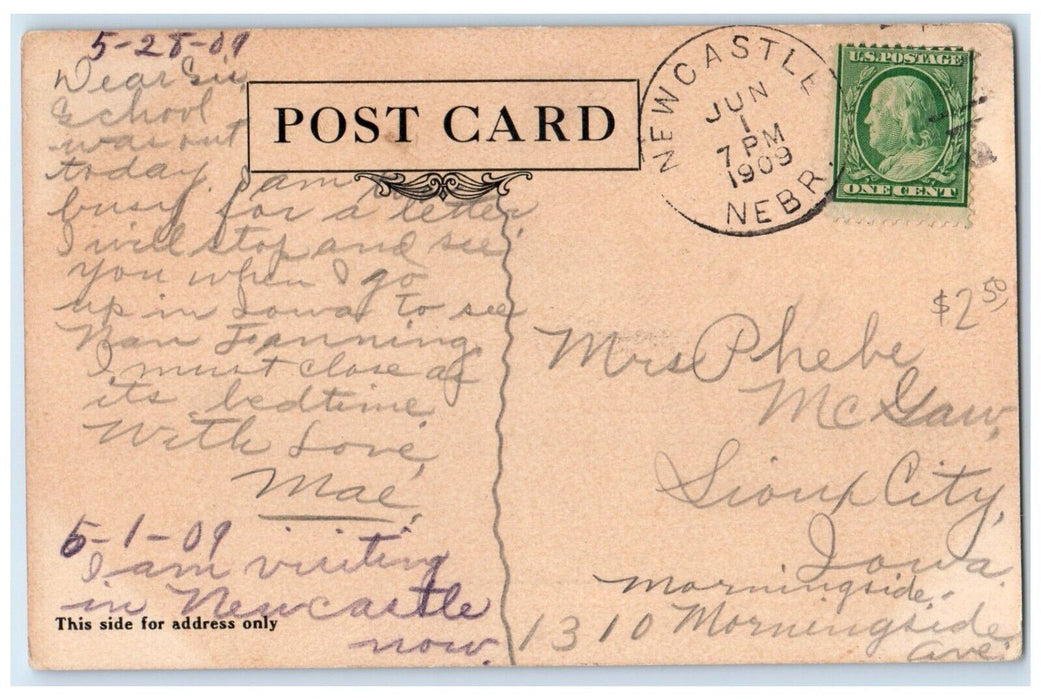 5-28-09
Dear Sis,
School
was out
today. I am
busy for a letter
I will stop and see
you when I go
up in Iowa to see
Nan Fanning.
I must close as
its bedtime
With Love,
Mae,
6-1-09
I am visiting
in Newcastle
now.
This side for address only
POST CARD
NEWCASTLE
JUN
1
7 PM
1909
NEBR.
U.S. POSTAGE
ONE CENT
$2.50
Mrs Phebe
McGaw,
Sioux City,
Iowa.
Morningside,
1310 Morningside
ave.